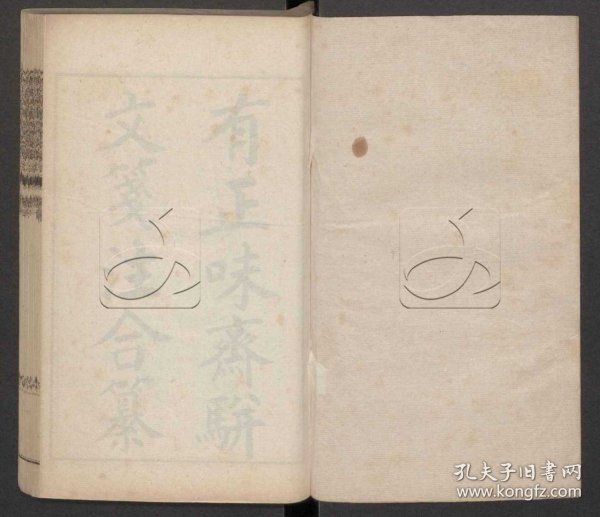 有正味齋駢
文箋注合纂
孔夫子旧書网
www.kongfz.com